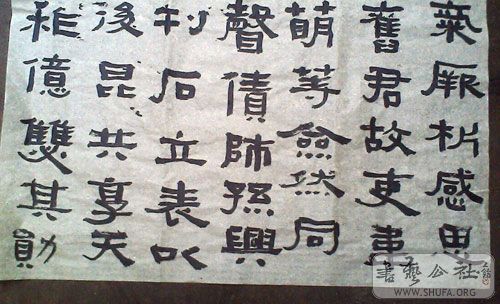 氣厥析感思
舊君故吏韋
萌等僉然同
聲債師孫興
刊石立表以
後昆共享天
祚億雙其勛
書藝公社
WWW.SHUFA.ORG